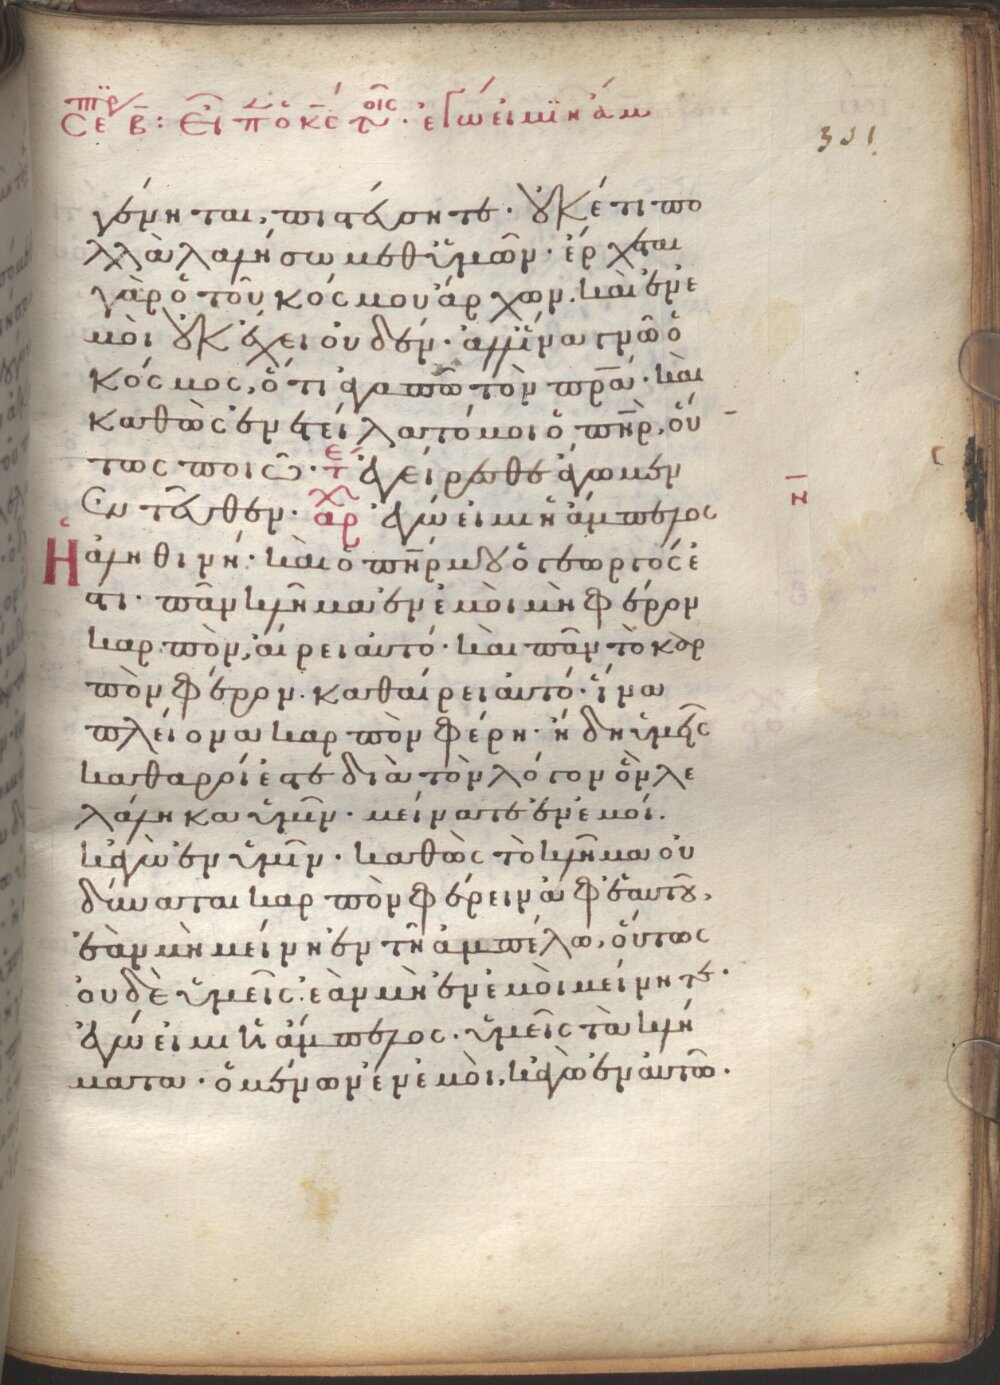 Σε β: Εἶπ ὁ κς τοῖς · ἐγώ εἰμι ἡ ἄμ
351
γένηται, πιστεύσητε · οὐκέτι πο
λλὰ λαλήσω μεθ ὑμῶν · ἔρχεται
γὰρ ὁ τοῦ κόσμου ἄρχων. καὶ ἐν ἐ
μοὶ οὐκ ἔχει οὐδέν · ἀλλ ἵνα γνῶ ὁ
κόσμος, ὅτι ἀγαπῶ τὸν πρα · καὶ
καθὼς ἐνετείλατό μοι ὁ πηρ, οὕ
τως ποιῶ · τε ἐγείρεσθε ἄγωμεν
ἐντεῦθεν · αρχ ἐγώ εἰμι ἡ ἄμπελος
Ἡ ἀληθινή · καὶ ὁ πηρ μου ὁ γεωργός ἐ
στι · πᾶν κλῆμα ἐν ἐμοὶ μὴ φέρον
καρπὸν, αἴρει αὐτό · καὶ πᾶν τὸ καρ
πὸν φέρον. καθαίρει αὐτό · ἵνα
πλείονα καρπὸν φέρη · ἤδη ὑμεῖς
καθαροί ἐστε διὰ τὸν λόγον ὃν λε
λάληκα ὑμῖν · μείνατε ἐν ἐμοί.
κἀγὼ ἐν ὑμῖν · καθὼς τὸ κλῆμα οὐ
δύναται καρπὸν φέρειν ἀφ ἑαυτοῦ,
ἐὰν μὴ μείνη ἐν τῆ ἀμπέλω, οὕτως
οὐδὲ ὑμεῖς ἐὰν μὴ ἐν ἐμοὶ μείνητε ·
ἐγώ εἰμι ἡ ἄμπελος · ὑμεῖς τὰ κλή
ματα · ὁ μένων ἐν ἐμοὶ, κἀγὼ ἐν αὐτῶ ·